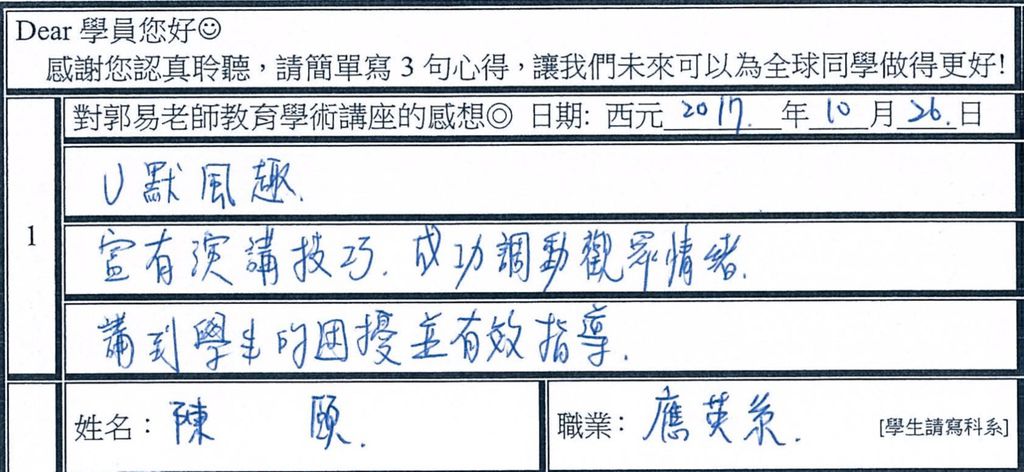 Dear 學員您好☺
感謝您認真聆聽，請簡單寫 3 句心得，讓我們未來可以為全球同學做得更好!
1
對郭易老師教育學術講座的感想◎ 日期: 西元 2017. 年 10 月 26. 日
U默風趣.
富有演講技巧. 成功調動觀眾情緒.
講到學生的困擾並有效指導.
姓名：陳 頤. 職業：應英系. [學生請寫科系]